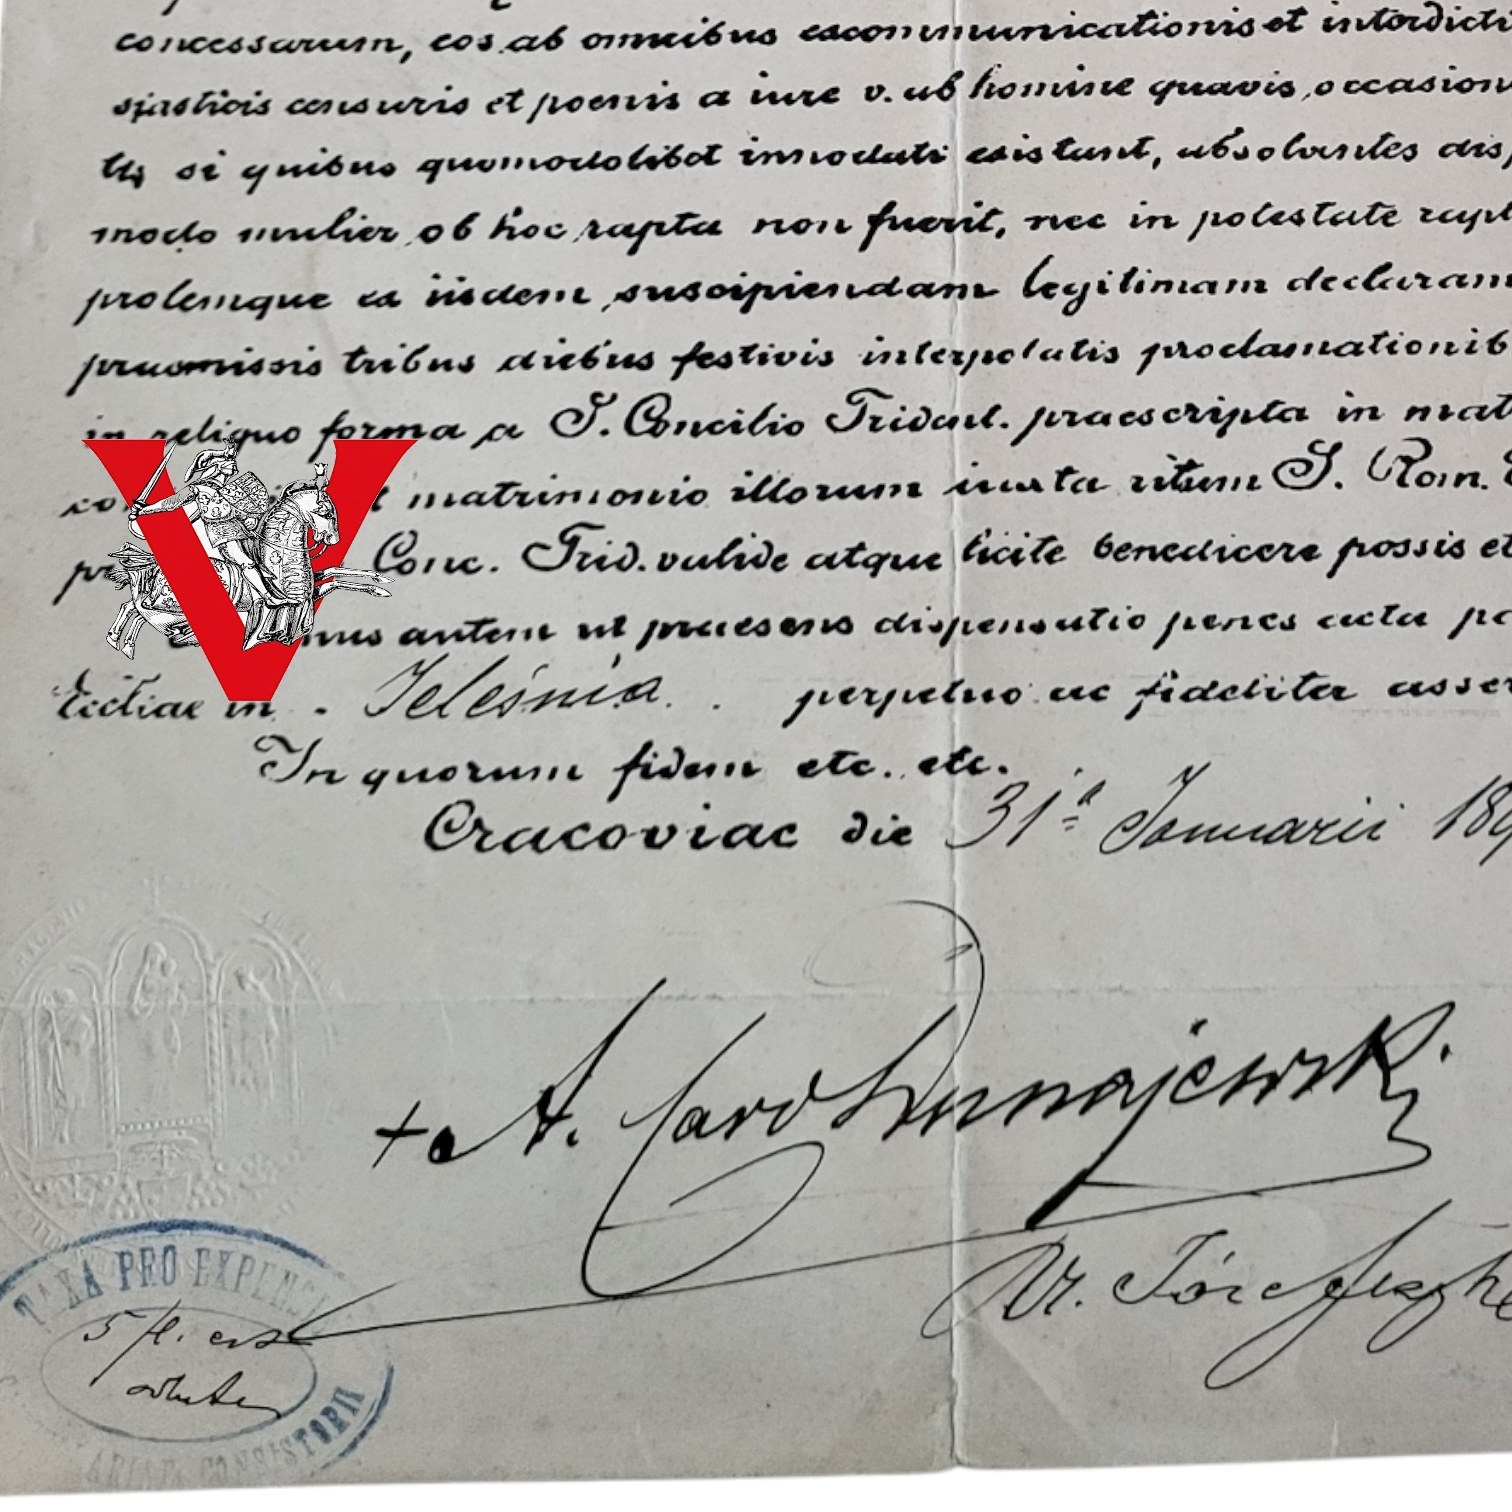 concessarum, eos ab omnibus excommunicationis et interdicti
siasticis censuris et poenis a iure v. ab homine quavis occasion
tis si quibus quomodolibet innodati existant, absolventes disp
modo mulier ob hoc rapta non fuerit, nec in potestate rapt
prolemque ex iisdem suscipiendam legitimam declaram
praemissis tribus diebus festivis interpolatis proclamationib
in reliquo forma a S. Concilio Trident. praescripta in mat
co matrimonio illorum iuxta ritum S. Rom.
pr Conc. Trid. valide atque licite benedicere possis et
mus autem ut praesens dispensatio penes acta pa
Eccliae in Jeleśnia. perpetuo ac fideliter asser
In quorum fidem etc. etc.
Cracoviae die 31ª Januarii 189
+ A. Card Dunajewski.
TAXA PRO EXPENS
5 fl.
soluta
CONSISTORII
V